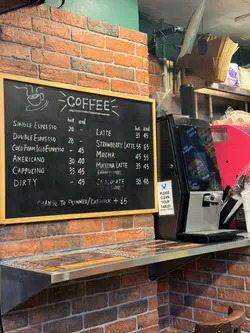 COFFEE
HOT ICED
SINGLE ESPRESSO 20 -
DOUBLE ESPRESSO 28 -
COCO FOAM ICED ESPRESSO - 45
AMERICANO 30 40
CAPPUCINO 35 45
DIRTY - 49
HOT ICED
LATTE 35 45
STRAWBERRY LATTE 45 55
MOCHA 45 55
MATCHA LATTE 35 45
CHOCOLATE 38 48
CHANGE TO + $5
PLEASE
CLEAN
YOUR
TABLES